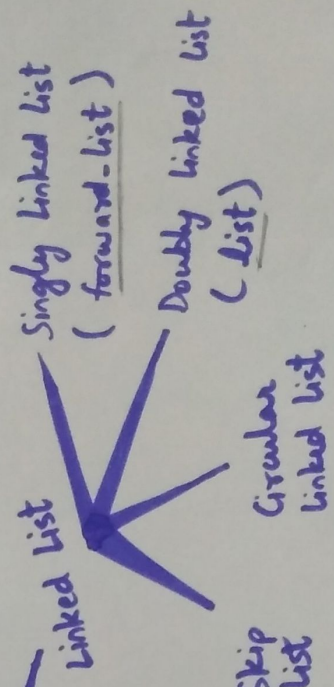 Linked List
Singly Linked List
( forward-list )
Doubly Linked List
( list )
Circular
Linked List
Skip
List